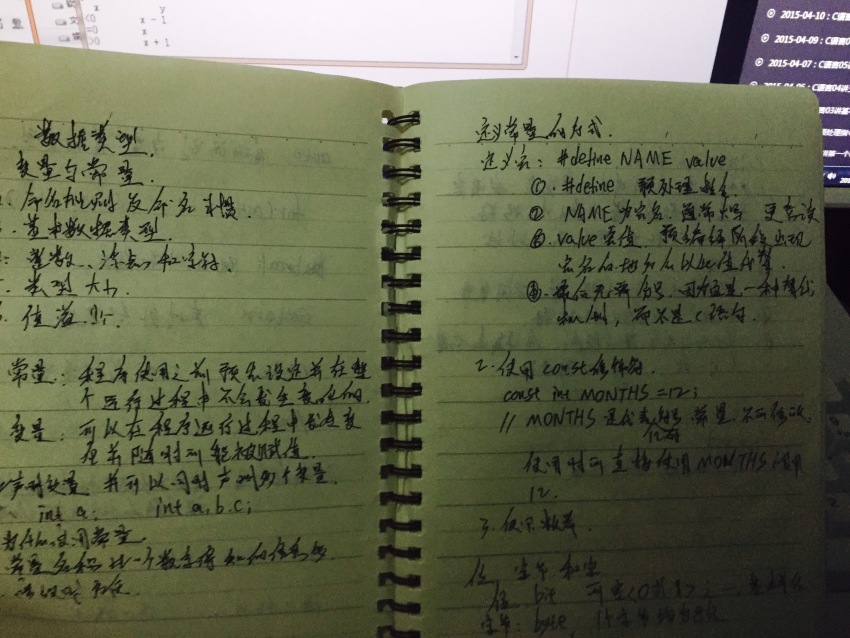 x y
<0 x - 1
=0 x
>0 x + 1
2015-04-10：C语言
2015-04-09：C语言0
2015-04-07：C语言05讲
C语言04讲
03讲基
数据类型.
变量与常量.
命名规则及命名习惯.
基本数据类型.
整数、浮点、和字符.
类型大小.
值溢出.
常量：程序使用之前预先设定并在整
个运行过程中不会发生变化的.
变量：可以在程序运行过程中发生变
化并随时可能被赋值.
声明变量 并可以同时声明多个变量.
int a; int a,b,c;
为什么使用常量.
常量名称比一个数字得知的信息多
定义常量的方式.
定义宏：#define NAME value
①. #define 预处理指令
② NAME为宏名. 通常大写 更易读
③. value 宏值. 预编译阶段出现
宏名的地方会以此值代替.
④. 最后无需分号. 因为宏是一种替代
机制，而不是C语句.
2. 使用const修饰符.
const int MONTHS =12;
// MONTHS 是代表 常量. 不可修改.
使用时可直接使用MONTHS 调用
12.
3. 使用枚举.
位、字节和字
位 bit 可存(0或1)；
字节：byte